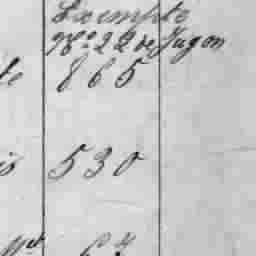 Exempte
Nº 22 de Jugon
te 865
is 530
64